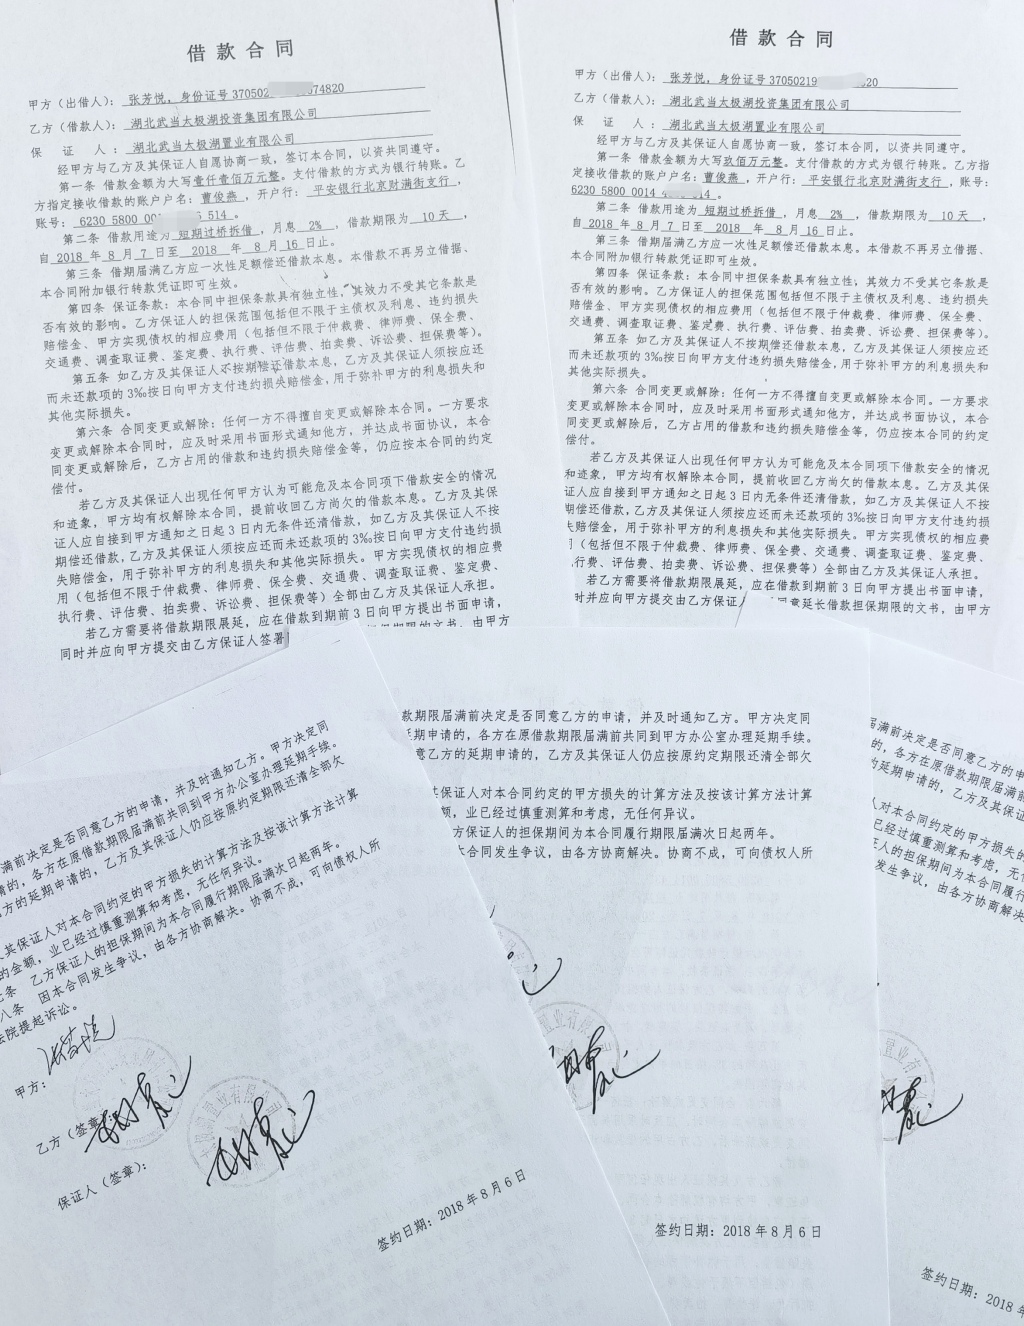 借款合同
甲方（出借人）：张芳悦，身份证号370502 074820
乙方（借款人）：湖北武当太极湖投资集团有限公司
保 证 人：湖北武当太极湖置业有限公司
经甲方与乙方及其保证人自愿协商一致，签订本合同，以资共同遵守。
第一条 借款金额为大写壹仟壹佰万元整。支付借款的方式为银行转账。乙
方指定接收借款的账户户名：曹俊燕，开户行：平安银行北京财满街支行，
账号：6230 5800 00 6 514 。
第二条 借款用途为 短期过桥拆借 ，月息 2% ，借款期限为 10 天 ，
自 2018 年 8 月 7 日至 2018 年 8 月 16 日止。
第三条 借期届满乙方应一次性足额偿还借款本息。本借款不再另立借据、
本合同附加银行转款凭证即可生效。
第四条 保证条款：本合同中担保条款具有独立性，其效力不受其它条款是
否有效的影响。乙方保证人的担保范围包括但不限于主债权及利息、违约损失
赔偿金、甲方实现债权的相应费用（包括但不限于仲裁费、律师费、保全费、
交通费、调查取证费、鉴定费、执行费、评估费、拍卖费、诉讼费、担保费等）。
第五条 如乙方及其保证人不按期偿还借款本息，乙方及其保证人须按应还
而未还款项的3‰按日向甲方支付违约损失赔偿金，用于弥补甲方的利息损失和
其他实际损失。
第六条 合同变更或解除：任何一方不得擅自变更或解除本合同。一方要求
变更或解除本合同时，应及时采用书面形式通知他方，并达成书面协议，本合
同变更或解除后，乙方占用的借款和违约损失赔偿金等，仍应按本合同的约定
偿付。
若乙方及其保证人出现任何甲方认为可能危及本合同项下借款安全的情况
和迹象，甲方均有权解除本合同，提前收回乙方尚欠的借款本息。乙方及其保
证人应自接到甲方通知之日起3日内无条件还清借款，如乙方及其保证人不按
期偿还借款，乙方及其保证人须按应还而未还款项的3‰按日向甲方支付违约损
失赔偿金，用于弥补甲方的利息损失和其他实际损失。甲方实现债权的相应费
用（包括但不限于仲裁费、律师费、保全费、交通费、调查取证费、鉴定费、
执行费、评估费、拍卖费、诉讼费、担保费等）全部由乙方及其保证人承担。
若乙方需要将借款期限展延，应在借款到期前3日向甲方提出书面申请，
同时并应向甲方提交由乙方保证人签署 担保期限的文书，由甲方
借款合同
甲方（出借人）：张芳悦，身份证号37050219 20
乙方（借款人）：湖北武当太极湖投资集团有限公司
保 证 人：湖北武当太极湖置业有限公司
经甲方与乙方及其保证人自愿协商一致，签订本合同，以资共同遵守。
第一条 借款金额为大写玖佰万元整。支付借款的方式为银行转账。乙方指
定接收借款的账户户名：曹俊燕，开户行：平安银行北京财满街支行，账号：
6230 5800 0014 14 。
第二条 借款用途为 短期过桥拆借 ，月息 2% ，借款期限为 10 天 ，
自 2018 年 8 月 7 日至 2018 年 8 月 16 日止。
第三条 借期届满乙方应一次性足额偿还借款本息。本借款不再另立借据、
本合同附加银行转款凭证即可生效。
第四条 保证条款：本合同中担保条款具有独立性，其效力不受其它条款是
否有效的影响。乙方保证人的担保范围包括但不限于主债权及利息、违约损失
赔偿金、甲方实现债权的相应费用（包括但不限于仲裁费、律师费、保全费、
交通费、调查取证费、鉴定费、执行费、评估费、拍卖费、诉讼费、担保费等）。
第五条 如乙方及其保证人不按期偿还借款本息，乙方及其保证人须按应还
而未还款项的3‰按日向甲方支付违约损失赔偿金，用于弥补甲方的利息损失和
其他实际损失。
第六条 合同变更或解除：任何一方不得擅自变更或解除本合同。一方要求
变更或解除本合同时，应及时采用书面形式通知他方，并达成书面协议，本合
同变更或解除后，乙方占用的借款和违约损失赔偿金等，仍应按本合同的约定
偿付。
若乙方及其保证人出现任何甲方认为可能危及本合同项下借款安全的情况
和迹象，甲方均有权解除本合同，提前收回乙方尚欠的借款本息。乙方及其保
证人应自接到甲方通知之日起3日内无条件还清借款，如乙方及其保证人不按
期偿还借款，乙方及其保证人须按应还而未还款项的3‰按日向甲方支付违约损
失赔偿金，用于弥补甲方的利息损失和其他实际损失。甲方实现债权的相应费
（包括但不限于仲裁费、律师费、保全费、交通费、调查取证费、鉴定费、
行费、评估费、拍卖费、诉讼费、担保费等）全部由乙方及其保证人承担。
若乙方需要将借款期限展延，应在借款到期前3日向甲方提出书面申请，
时并应向甲方提交由乙方保证人 同意延长借款担保期限的文书，由甲方
满前决定是否同意乙方的申请，并及时通知乙方。甲方决定同
请的，各方在原借款期限届满前共同到甲方办公室办理延期手续。
方的延期申请的，乙方及其保证人仍应按原约定期限还清全部欠
及其保证人对本合同约定的甲方损失的计算方法及按该计算方法计算
的金额，业已经过慎重测算和考虑，无任何异议。
七条 乙方保证人的担保期间为本合同履行期限届满次日起两年。
八条 因本合同发生争议，由各方协商解决。协商不成，可向债权人所
法院提起诉讼。
甲方：张芳悦
乙方（签章）：
保证人（签章）：
签约日期：2018 年 8 月 6 日
款期限届满前决定是否同意乙方的申请，并及时通知乙方。甲方决定同
延期申请的，各方在原借款期限届满前共同到甲方办公室办理延期手续。
意乙方的延期申请的，乙方及其保证人仍应按原约定期限还清全部欠
其保证人对本合同约定的甲方损失的计算方法及按该计算方法计算
额，业已经过慎重测算和考虑，无任何异议。
方保证人的担保期间为本合同履行期限届满次日起两年。
本合同发生争议，由各方协商解决。协商不成，可向债权人所
置业有限
签约日期：2018 年 8 月 6 日
届满前决定是否同意乙方的申
的，各方在原借款期限届满
的延期申请的，乙方及其保证
人对本合同约定的甲方损失的
已经过慎重测算和考虑，无任
证人的担保期间为本合同履行
发生争议，由各方协商解决
置业有
签约日期：2018 年